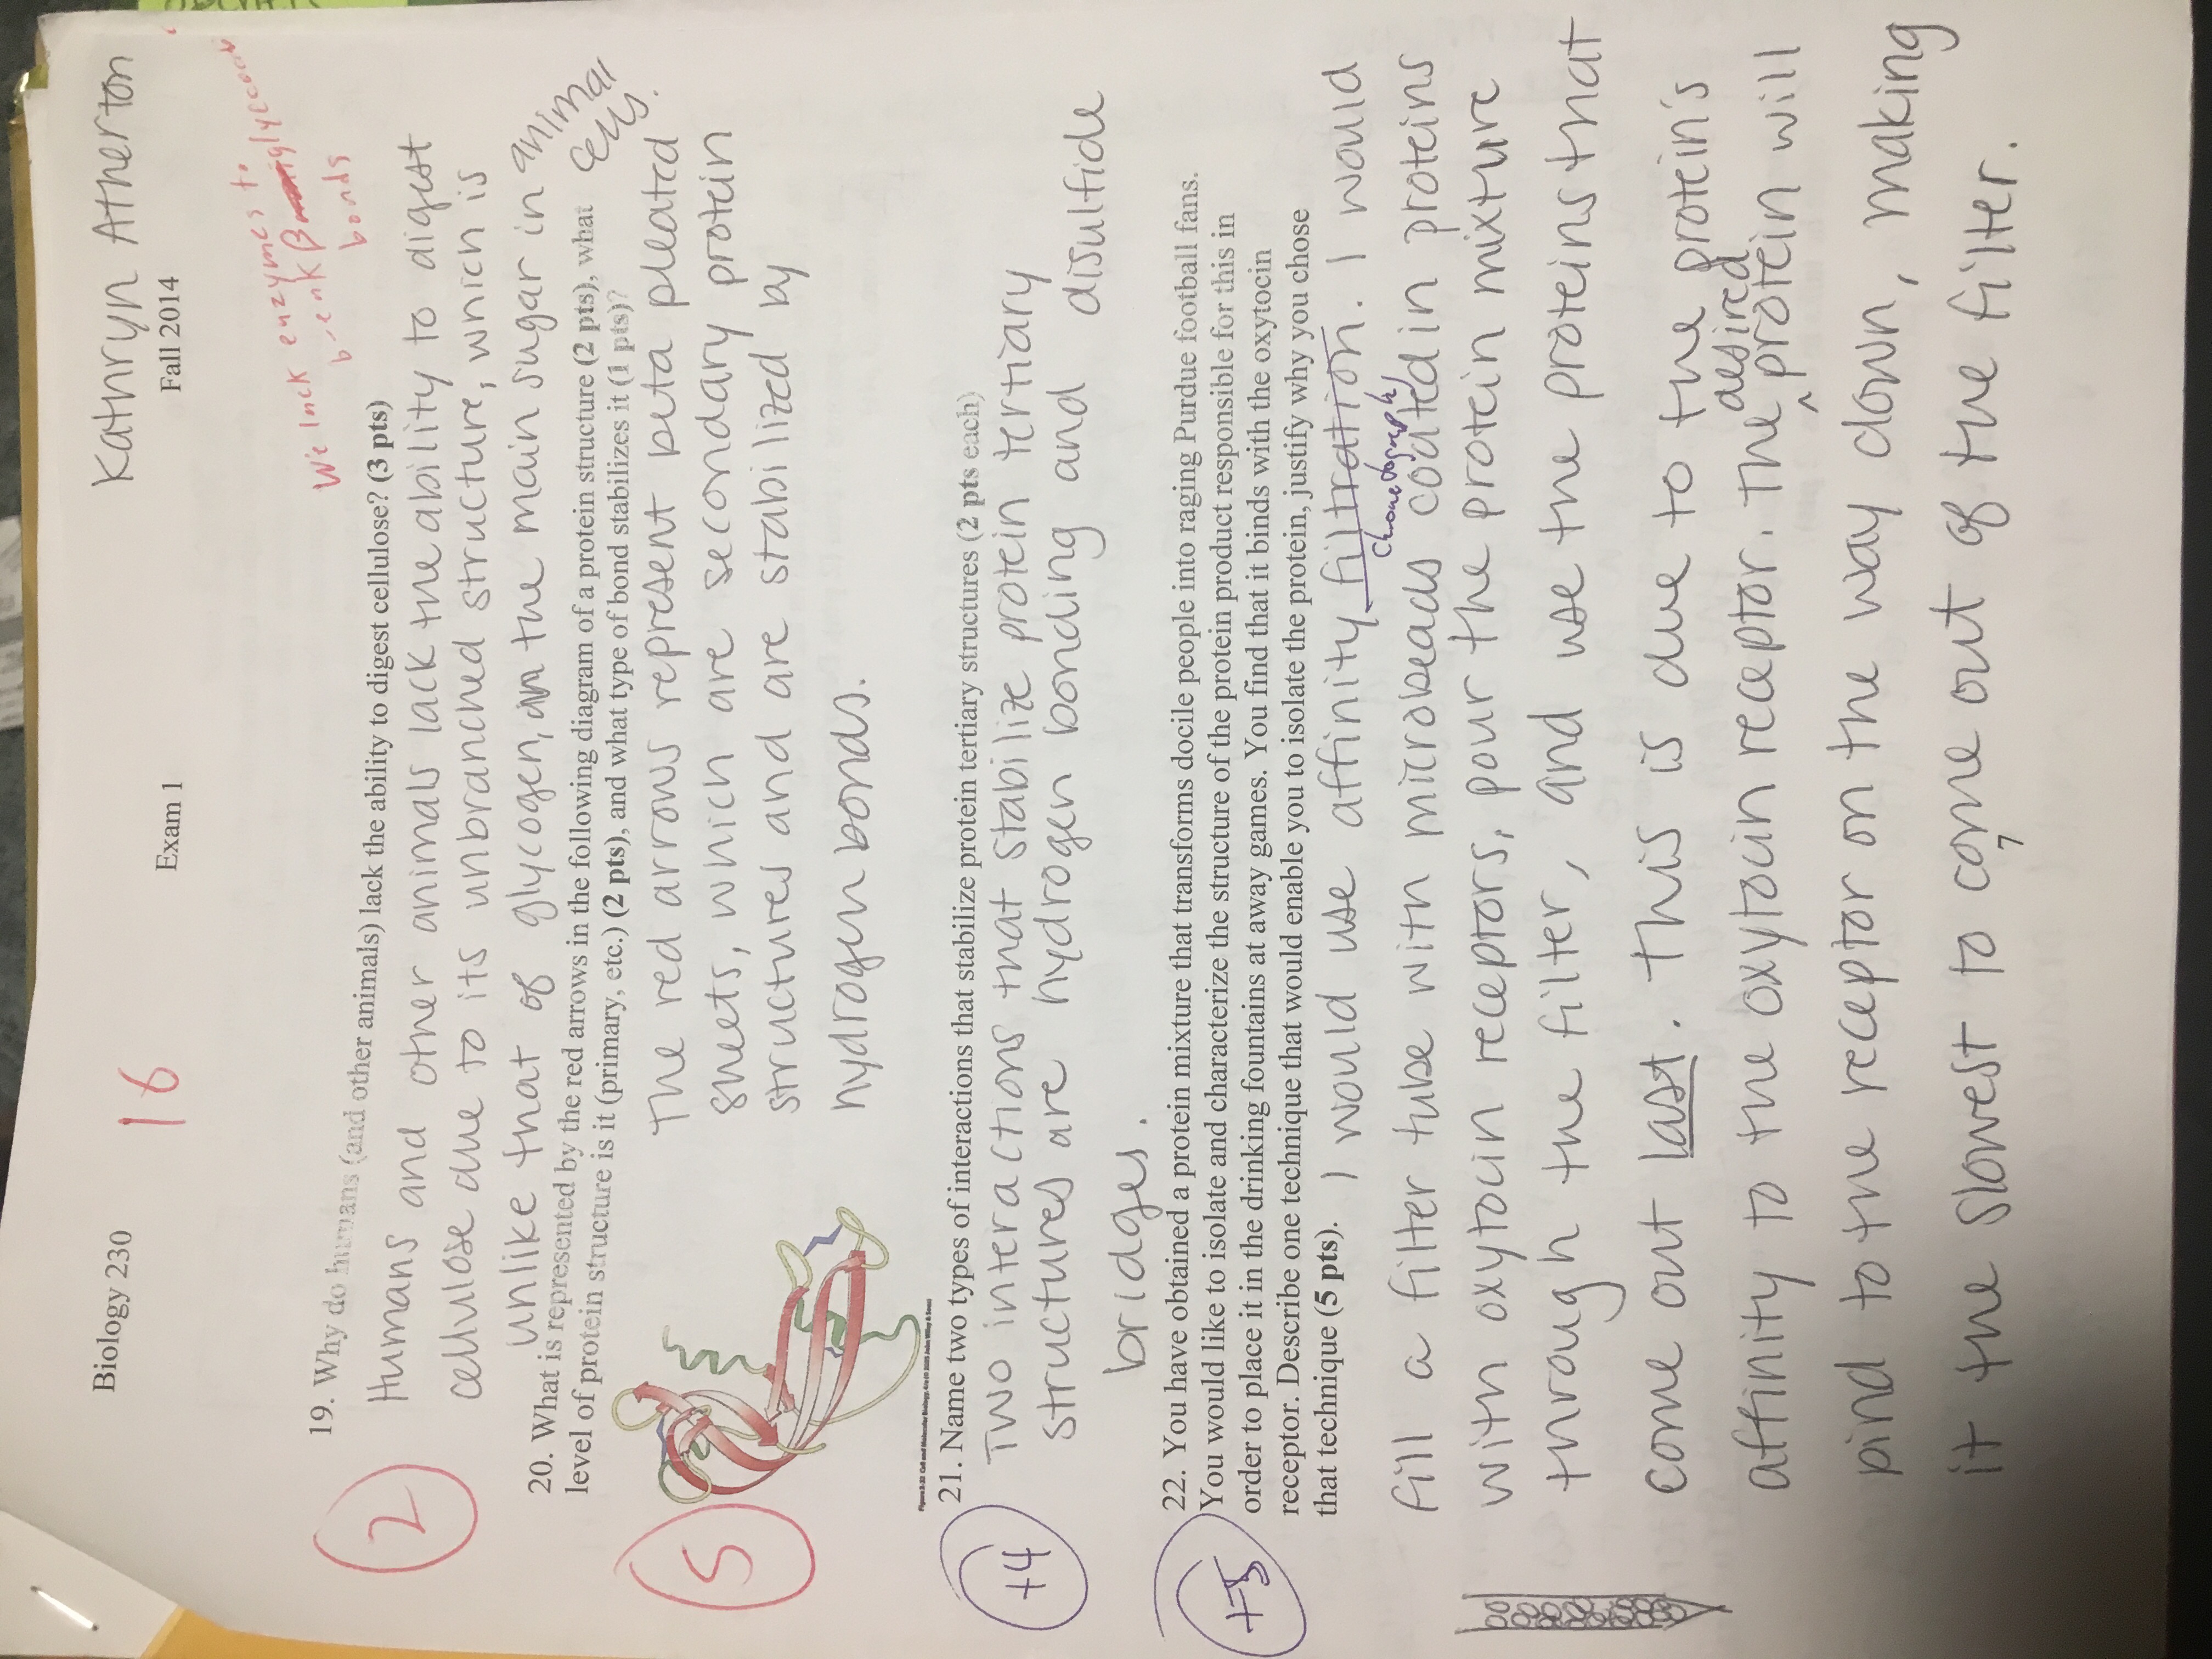 Biology 230
16
Exam 1
Kathryn Atherton
Fall 2014
We lack enzymes to
break β
bonds
2
19. Why do humans (and other animals) lack the ability to digest cellulose? (3 pts)
Humans and other animals lack the ability to digest
cellulose due to its unbranched structure, which is
unlike that of glycogen, the main sugar in animal
cells.
20. What is represented by the red arrows in the following diagram of a protein structure (2 pts), what
level of protein structure is it (primary, etc.) (2 pts), and what type of bond stabilizes it (1 pts)?
5
The red arrows represent beta pleated
sheets, which are secondary protein
structures and are stabilized by
hydrogen bonds.
Figure 2-32 Cell and Molecular Biology, 4/e (© 2005 John Wiley & Sons)
21. Name two types of interactions that stabilize protein tertiary structures (2 pts each)
+4
Two interactions that stabilize protein tertiary
structures are hydrogen bonding and disulfide
bridges.
22. You have obtained a protein mixture that transforms docile people into raging Purdue football fans.
You would like to isolate and characterize the structure of the protein product responsible for this in
order to place it in the drinking fountains at away games. You find that it binds with the oxytocin
receptor. Describe one technique that would enable you to isolate the protein, justify why you chose
that technique (5 pts).
+5
I would use affinity filtration. I would
chromatography
fill a filter tube with microbeads coated in proteins
with oxytocin receptors, pour the protein mixture
through the filter, and use the proteins that
come out last. This is due to the protein's
affinity to the oxytocin receptor. The desired protein will
bind to the receptor on the way down, making
it the slowest to come out of the filter.
7